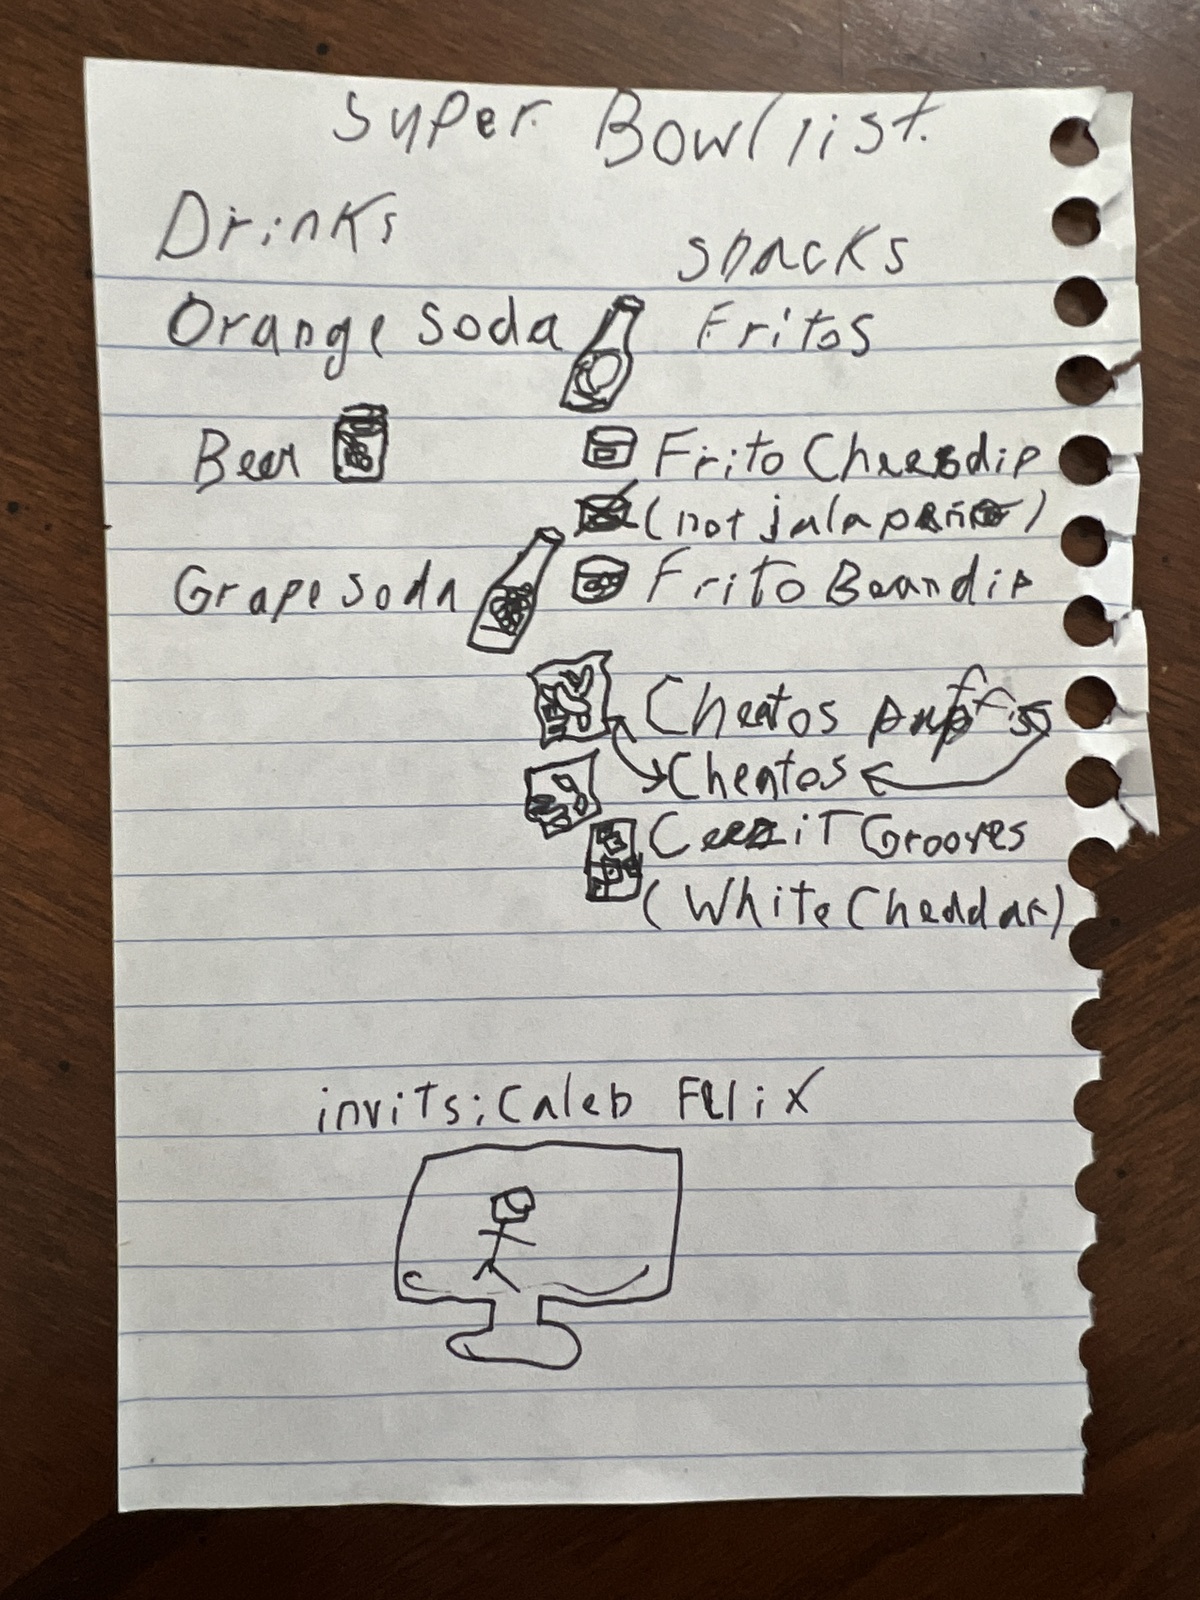 Super Bowl list.
Drinks
snacks
Orange soda
Fritos
Beer
Frito Cheesdip
(not jalapeño)
Grape soda
Frito Beandip
Cheatos puffs
Cheatos
CeeziT Grooves
(White Cheddar)
invits; Caleb Felix